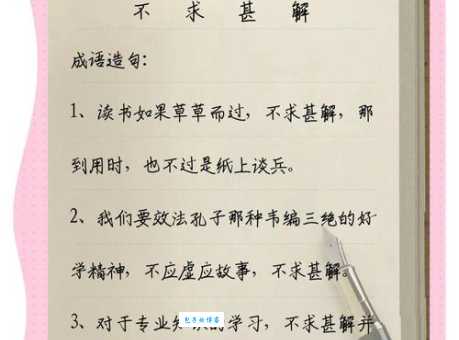 不求甚解
成语造句：
1、读书如果草草而过，不求甚解，那
到用时，也不过是纸上谈兵。
2、我们要效法孔子那种韦编三绝的好
学精神，不应虚应故事，不求甚解。
3、对于专业知识的学习，不求甚解并